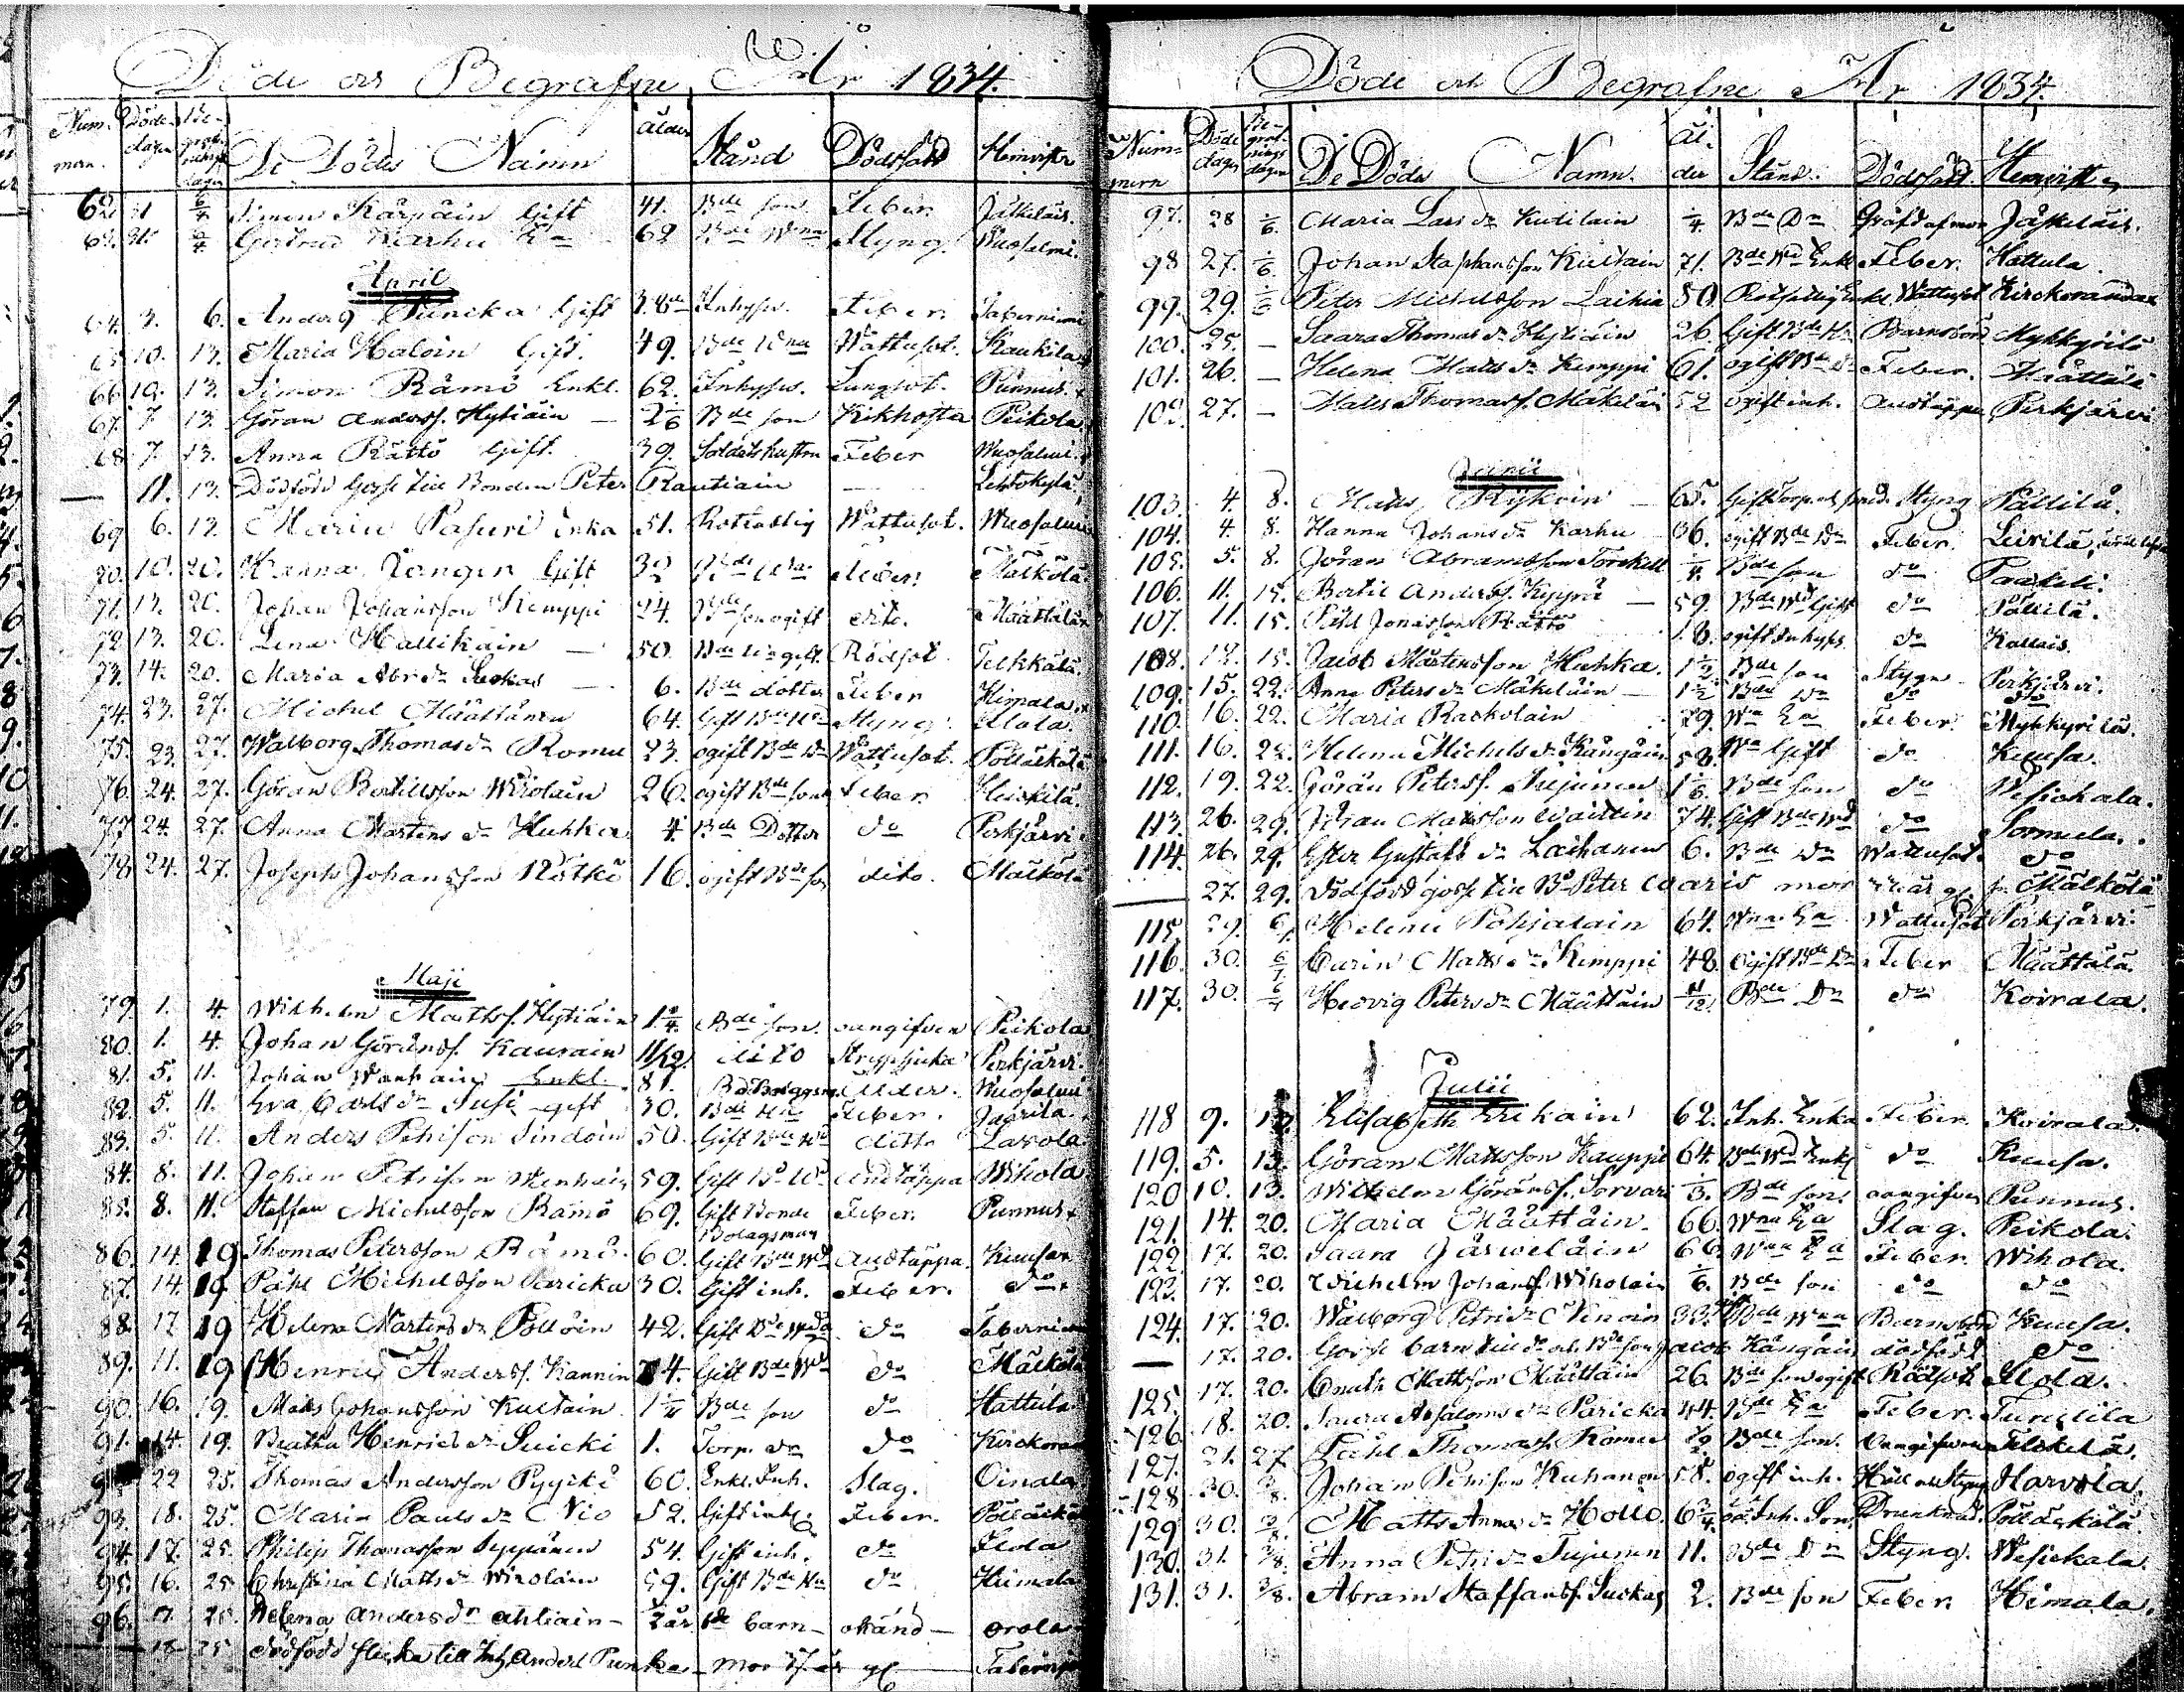 Döde och Begrafne År 1834.
Num- mern. Döde dagen Be- grafnings dagen De Dödas Namn ålder Stånd Dödssätt Hemvister
62. 31 6/4 Simon Kärpäin Gift 41. Bde son. Feber. Jäskeläis.
63. 31. 6/4 Gertrud Karhu Ea 62 Bde Wna Styng. Wuosalmi.
April
64. 3. 6. Anders Puncka Gift Inhyses. Feber
65. 10. 13. Maria Haloin Gift. 49. Bde Wna Wattusot. Kaukila
66. 10. 13. Simon Rämö Enkl. 62. Inhyses. Lungsot. Punnus.
67. 7 13. Göran Anderss. Hytiäin — 2 1/6 Bde son Kikhosta Peikola
68. 7. 13. Anna Rättö Gift. 39. Soldatshustru Feber Wuosalmi.
— 11. 13. Dödfödd Gosse till Bonden Peter Rautiain — Lehtokylä
69 6. 13. Maria Pasuri Enka 51. Rotfattig Wattusot. Wuosalmi
70. 10. 20. Hanna Gift 32 Bde Wna Feber. Mälkölä
71. 13. 20. Johan Johansson Kemppi 24. Bde son ogift dito. Määttälä
72. 13. 20. Lena Hallikain — 50. Bde Wna gift. Rödsot. Telkkälä
73. 14. 20. Maria Abr. dr Suckas — 6. Bde dotter Feber Kimala
74. 23. 27. Michel Määttänen 64. Gift Bde Wd Styng. Ilola.
75. 23. 27. Walborg Thomas dr Romu 23. ogift Bde Dr Wattusot. Pölläkälä
76. 24. 27. Göran Bertillsson Wirolain 26. ogift Bde son Feber Heickilä.
77 24. 27. Anna Mårtens dr Huhka 4. Bde Dotter do Perkjärvi.
78. 24. 27. Joseph Johansson Rötkö 16. ogift Bde son dito. Mälkölä
Maji
79. 1. 4. Wilhelm Mattss. Hytiäin 1 3/4. Bde son. oangifven Peikola
80. 1. 4. Johan Göranss. Kaurain 11/12. dito Strypsjuka Perkjärvi.
81. 5. 11. Johan Wanhain Enkl. 81. Bd. Bolagsm. Ålder. Wuosalmi
82. 5. 11. Eva Carls dr Susi gift 30. Bde Hu Feber. Jaarila.
83. 5. 11. Anders Pehrson Sindoin 50. Gift Bde Wd ditto Lavola
84. 8. 11. Johan Petrisson Wenhain 59. Gift Bd Wd Andtäppa Wihola
85. 8. 11. Staffan Michelsson Rämö 69. Gift Bonde Bolagsman Feber. Punnus
86. 14. 19 Thomas Petersson Rämö. 60. Gift Bde Wd Andtäppa. Kuusa
87. 14. 19 Påhl Michelsson Paricka 30. Gift inh. Feber. do
88. 17 19 Helena Mårtens dr Pölloin 42. Gift Bde Wna do
89. 11. 19 Henric Anderss. Kannin 74. Gift Bde Wd do Mälkölä
90. 16. 19. Mats Johansson Kultain 1 1/4 Bde son do Hattula
91. 14. 19. Beatha Henrics dr Suicki 1. Torp. dr do
92 22 25. Thomas Andersson Pyyckö 60. Enkl. Inh. Slag. Oinala
93. 18. 25. Maria Pauls dr Nio 52. Gift inh. Feber. Pölläkälä
94. 17. 25. Philip Thomasson Seppänen 54. Gift inh. do Ilola
95. 16. 25 Christina Matts dr Wirolain 59. Gift Bde Hu do Himala
96. 25. Helena Anders dr Ahtiain — 1/2 år Bde barn — okänd — Orola
— 13 25 Dödfödd flicka till Inh. Anders Punka — mor
Döde och Begrafne År 1834.
Num- mern Döde dagen Be- graf- nings dagen De Döda Namn. Ål- der Stånd. Dödssätt. Hemvister
97. 28 1/6. Maria Lars dr Kutilain 1/4. Bde Dr Qväfd af mor Jäskeläis.
98 27. 1/6. Johan Staphansson Kultain 71. Bde Wd Enkl Feber. Hattula.
99. 29. 1/6 Peter Michelsson Laihia 80. Rotfattig Enkl. Wattusot Kirckoranda
100. 25. — Saara Thomas dr Hytiäin 26. Gift Bde Hu Barnsbörd Mykkyrilä
101. 26. — Helena Matts dr Kemppi 61. ogift Bde Dr Feber. Määttälä
102. 27. — Matts Thomass. Mäkeläin 52 ogift inh. Andtäppa Perkjärvi
Junii
103. 4. 8. Matts Ryhäin — 65. Gift Torp. Styng Pällilä.
104. 4. 8. Hanna Johans dr Karhu 36. ogift Bde Dr Feber. Leivilä
105. 5. 8. Jöran Abramsson Torckell 1/4. Bde son do Paakeli.
106. 11. 15. Bertil Anderss. Kyyrä — 59. Bde Wd Gift do Pällilä.
107. 11. 15. Påhl Jonasson Rättö 18. ogift Inhyses do Kallais.
108. 12. 15. Jacob Mårtensson Huhka. 1 1/2 Bde son Styng Perkjärvi.
109. 15. 22. Anna Peters dr Mäkeläin — 1 1/2 Bde Dr do do
110. 16. 22. Maria Raskolain 79. Wna Ea Feber. Mykkyrilä.
111. 16. 22. Helena Michels dr Kängäin 58. Wna Gift do Kuusa.
112. 19. 22. Göran Peterss. Tujunen 1 1/6. Bde son do Wesickala.
113. 26. 29. Johan Matsson Waittin 74. Gift Bde Wd do Sormula.
114. 26. 29. Ester Gustafs dr Laihanen 6. Bde Dr Wattusot. do
— 27. 29. Dödfödd gosse till Bd Peter Caaris mor Mälkölä
115. 29. 6/7. Helena Pohjalain 64. Wna Ea Wattusot Perkjärvi.
116. 30. 6/7 Carin Matts dr Kemppi 48. Ogift Bde Dr Feber Määttälä.
117. 30. 6/7 Hedvig Peters dr Määttäin 11/12. Bde Dr do Koirala.
Julii
118 9. 13. Elisabeth Erikäin 62. Inh. Enka Feber. Koirala.
119. 5. 13. Göran Mattsson Kauppi 64. Bde Wd Enkl do Kuusa.
120 10. 13. Wilhelm Göranss. Sorvari 1/3. Bde son. oangifven Punnus.
121. 14. 20. Maria Määttäin. 66. Wna Ea Slag. Peikola.
122. 17. 20. Saara Järweläin 66. Wna Ea Feber. Wihola.
123. 17. 20. Wilhelm Johanss. Wiholain 1/6. Bde son do do
124. 17. 20. Walborg Petri dr Nenoin 33. Bde Wna Barnsbörd Kuusa.
— 17. 20. Gosse barn till do och Bde son Jacob Kängäin dödfödd do
125. 17. 20. Enoch Mattsson Määttäin 26. Bde son ogift Rödsot Ilola.
126. 18. 20. Saara Absaloms dr Paricka 44. Bde Ea Feber.
127. 21. 27 Påhl Thomass. Romu Bde son. Oangifven
128 30. 3/8. Johan Pehrson Kuhanen 58. ogift inh. Håll och Styng Harvola.
129 30. 3/8. Matts Annas dr Hollo. 6 3/4. oä. Inh. Son. Drunknad. Pölläkälä
130. 31. 3/8. Anna Petri dr Tujunen 11. Bde Dr Styng. Wesickala.
131. 31. 3/8. Abram Staffanss. Suckas 2. Bde son Feber. Himala.